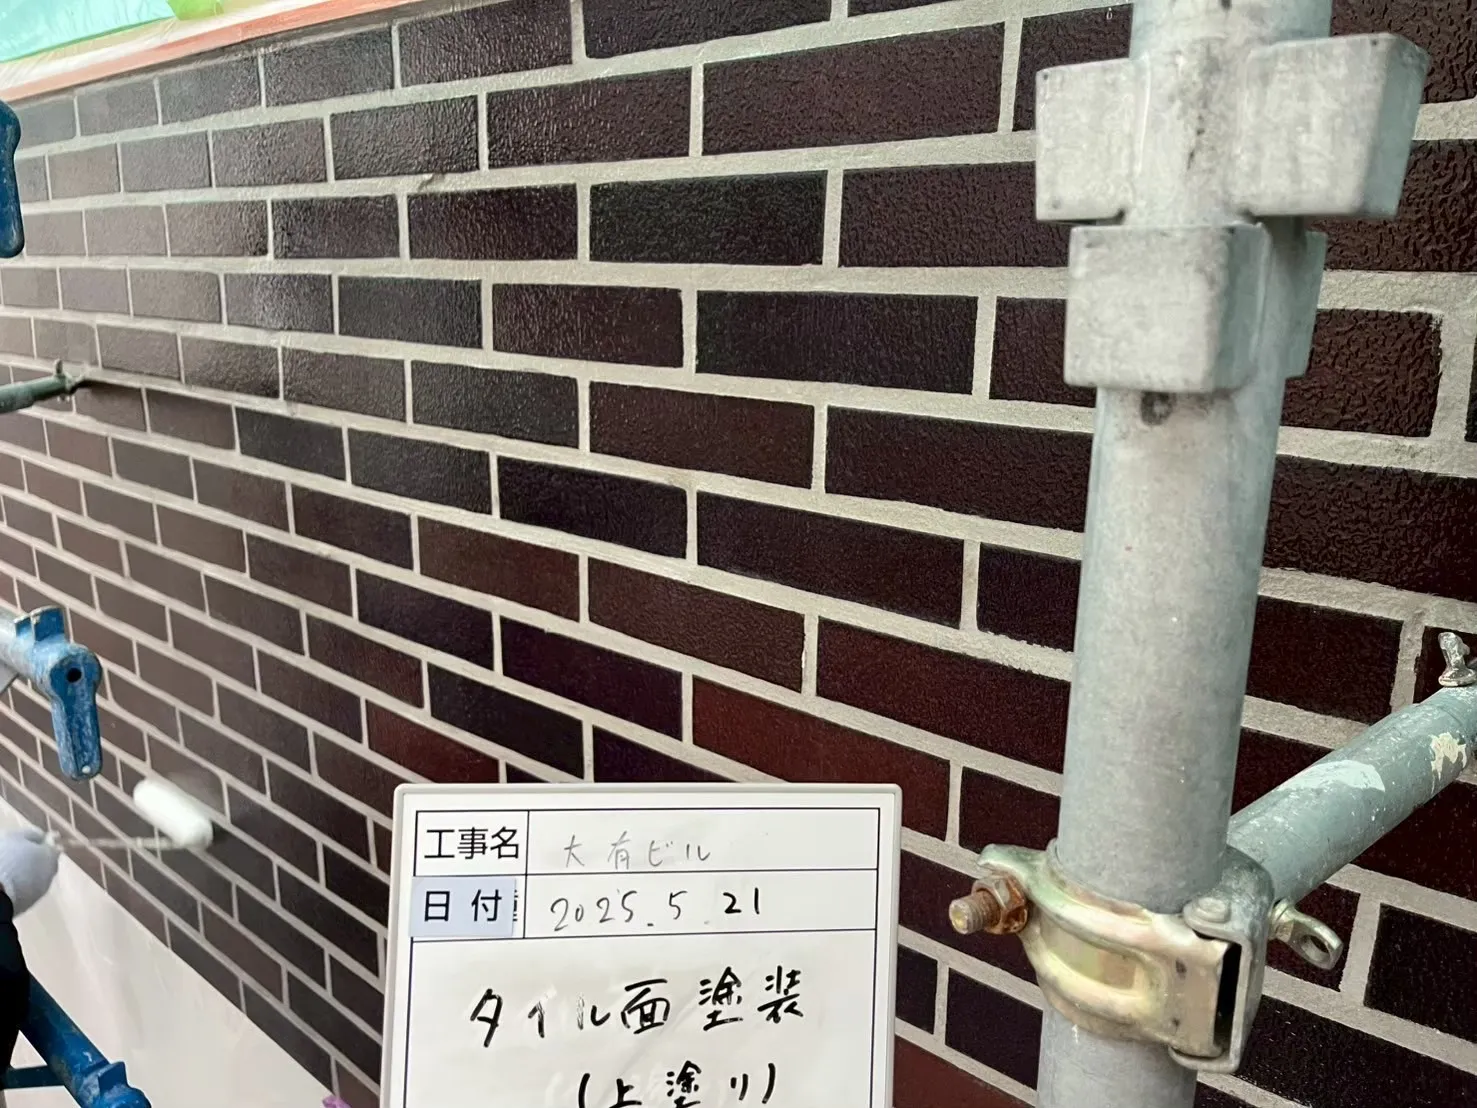 工事名 大有ビル
日付 2025.5.21
タイル面塗装
(上塗り)